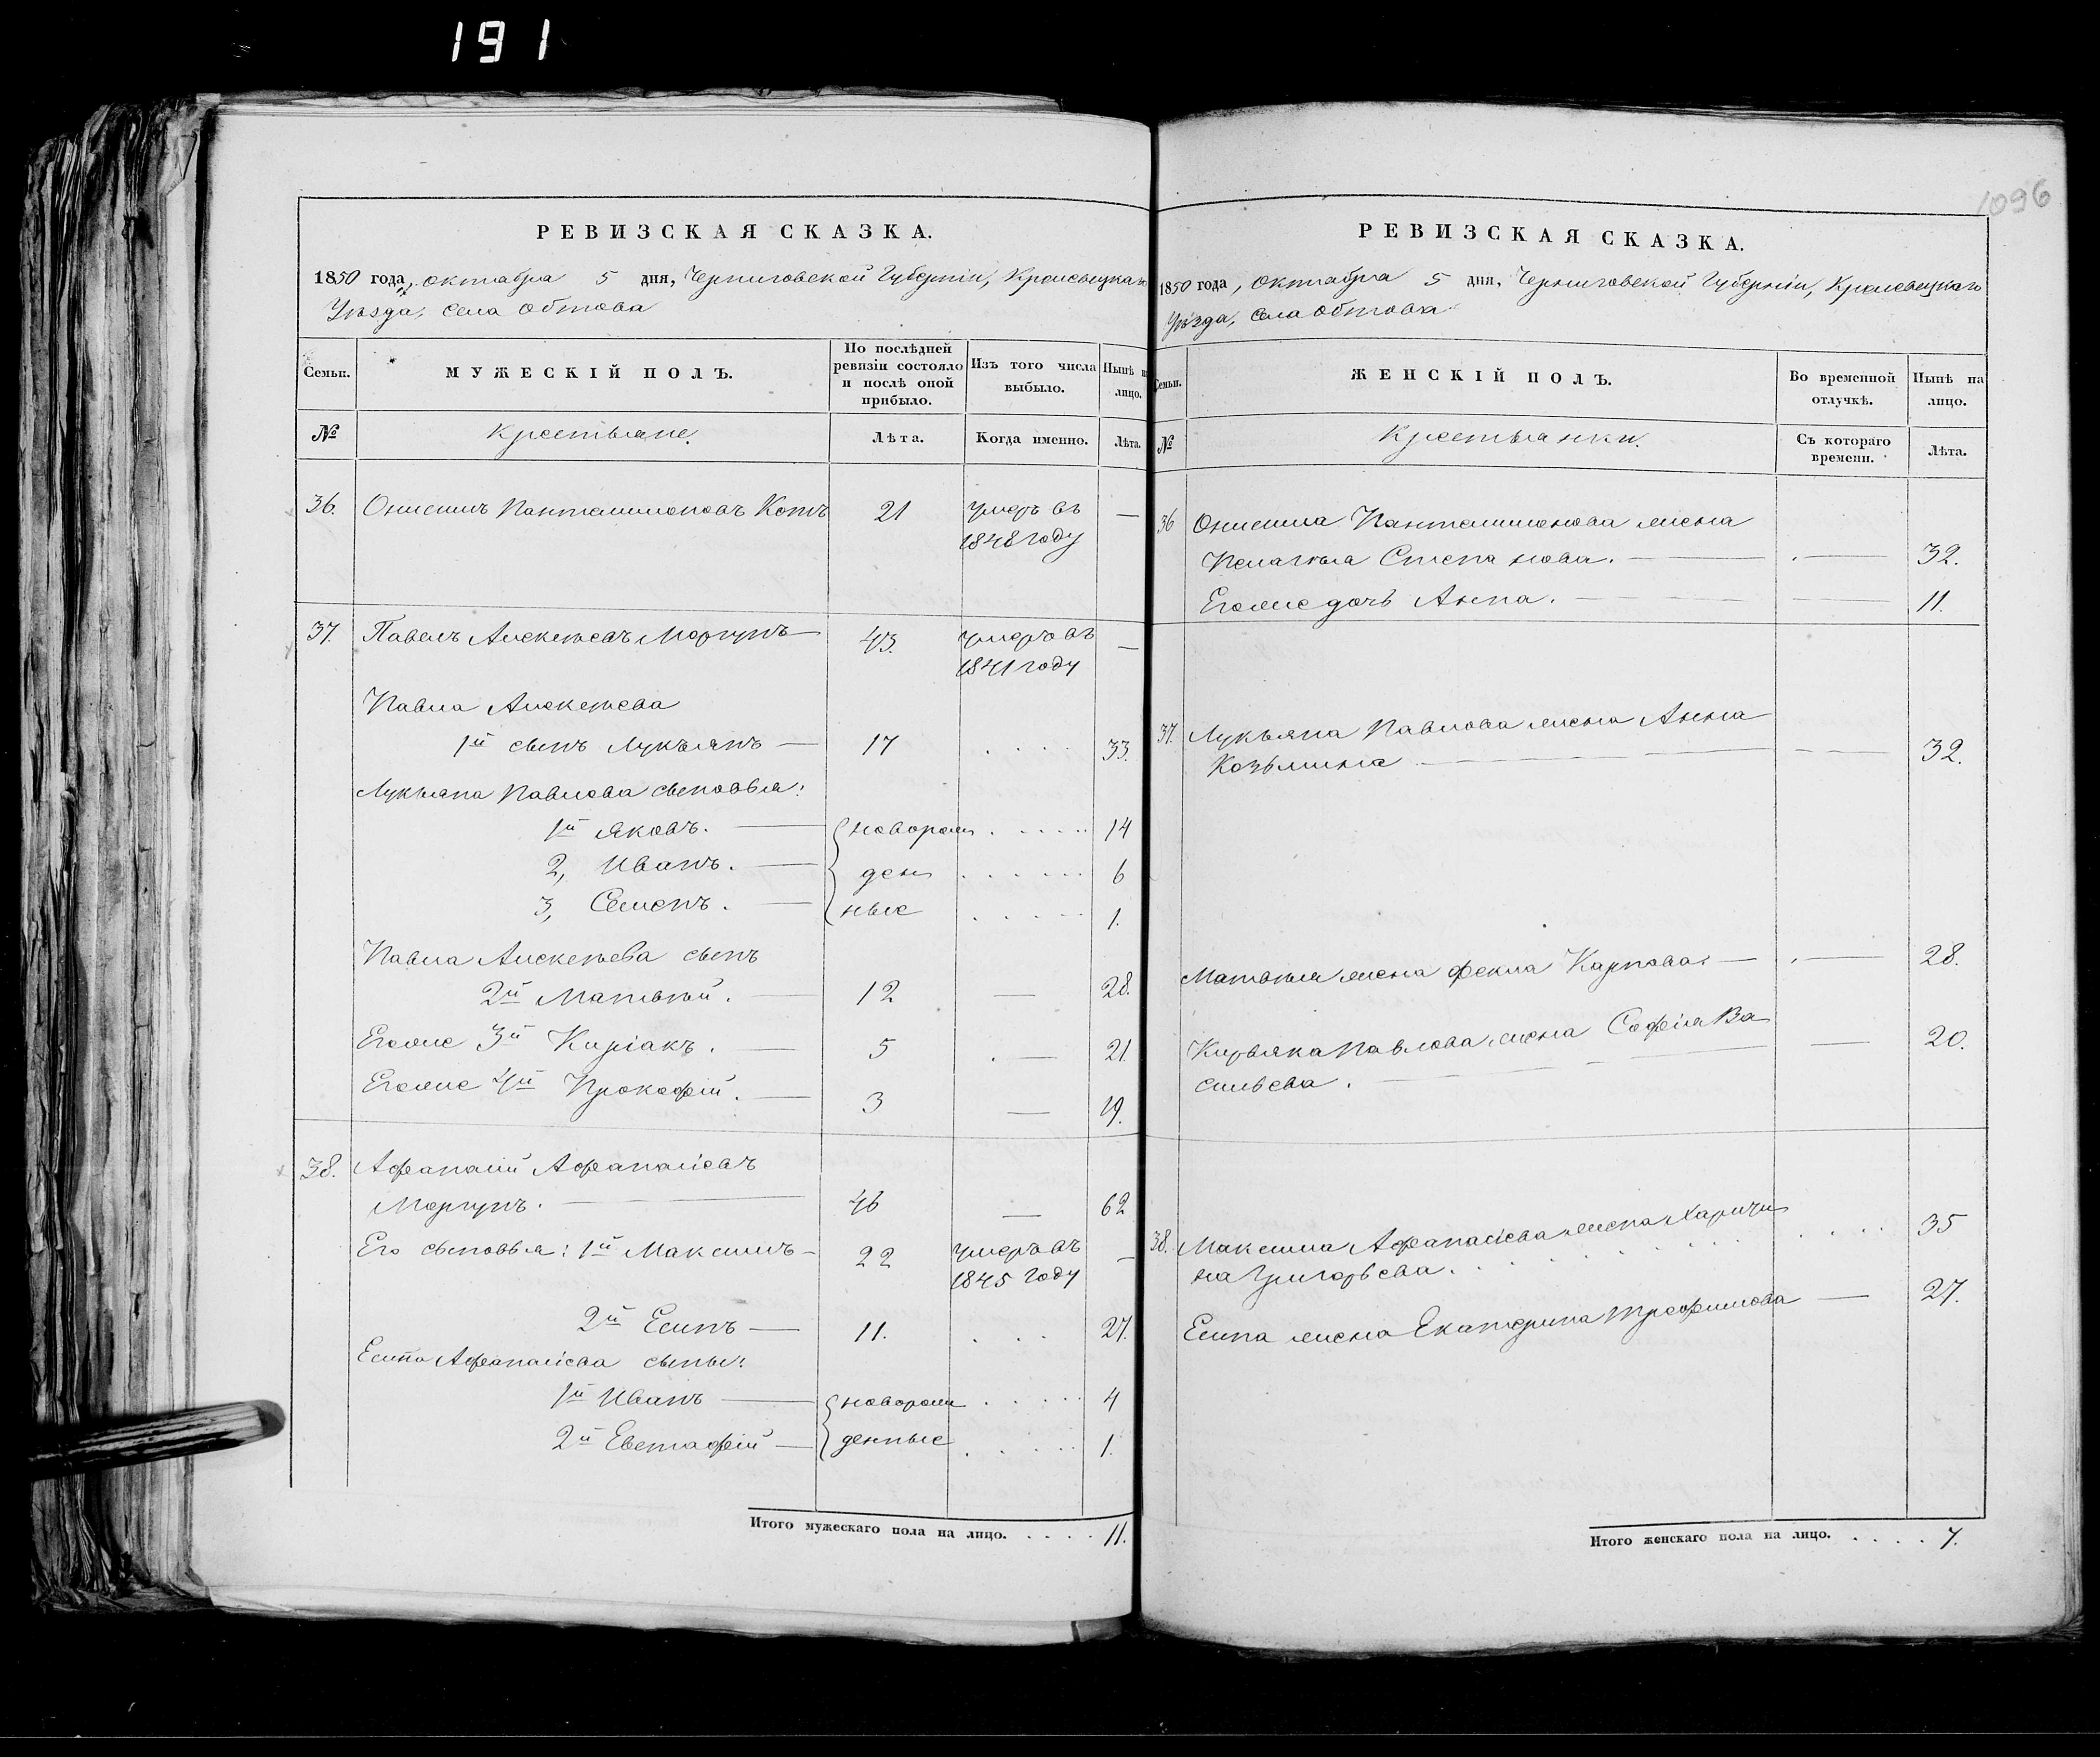 191
РЕВИЗСКАЯ СКАЗКА.
1850 года, октября 5 дня, Черниговской Губерніи, Кролевецкаго
Уѣзда, села Обтова
Семьи. МУЖЕСКІЙ ПОЛЪ. По послѣдней ревизіи состояло и послѣ оной прибыло. Изъ того числа выбыло. Нынѣ на лицо.
№ Крестьяне. Лѣта. Когда именно. Лѣта.
36. Онисимъ Пантелимоновъ Котъ 21 умеръ въ —
1848 году
37. Павелъ Алексѣевъ Моргунъ 43. умеръ въ —
1841 году
Павла Алексѣева
1й сынъ Лукьянъ — 17 33.
Лукьяна Павлова сыновья:
1й Яковъ. — новорож 14
2, Иванъ. — ден 6
3, Семенъ. — ные 1.
Павла Алексѣева сынъ
2й Матвѣй. — 12 — 28.
Егоже 3й Киріакъ. — 5 — 21
Егоже 4й Прокофій. — 3 — 19.
38. Афанасій Афанасіевъ
Моргунъ. — 46 — 62
Его сыновья: 1й Максимъ — 22 умеръ въ —
1845 году
2й Есипъ — 11. 27.
Есипа Афанасіева сыны:
1й Иванъ — новорож 4
2й Евстафій — денные 1.
Итого мужескаго пола на лицо. . . . . 11.
1096
РЕВИЗСКАЯ СКАЗКА.
1850 года, октября 5 дня, Черниговской Губерніи, Кролевецкаго
Уѣзда, села Обтова
Семьи. ЖЕНСКІЙ ПОЛЪ. Во временной отлучкѣ. Нынѣ на лицо.
№ Крестьянки. Съ котораго времени. Лѣта.
36 Онисима Пантелимонова жена
Пелагѣя Степанова. — 32.
Егоже дочь Анна. — 11.
37. Лукьяна Павлова жена Анна
Козьмина — 32.
Матвѣя жена Фекла Карпова — 28.
Кирьяка Павлова жена Софія Ва
сильева. — 20.
38. Максима Афанасіева жена Харити
на Григорьева. 35
Есипа жена Екатерина Трофимова — 27.
Итого женскаго пола на лицо. . . . . 7.